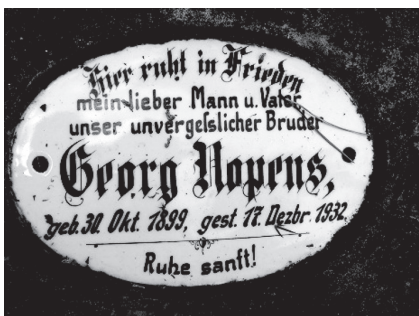 Hier ruht in Frieden
mein lieber Mann u. Vater
unser unvergeſslicher Bruder
Georg Nopens,
geb. 30. Okt. 1899, gest. 17. Dezbr. 1932
Ruhe sanft!